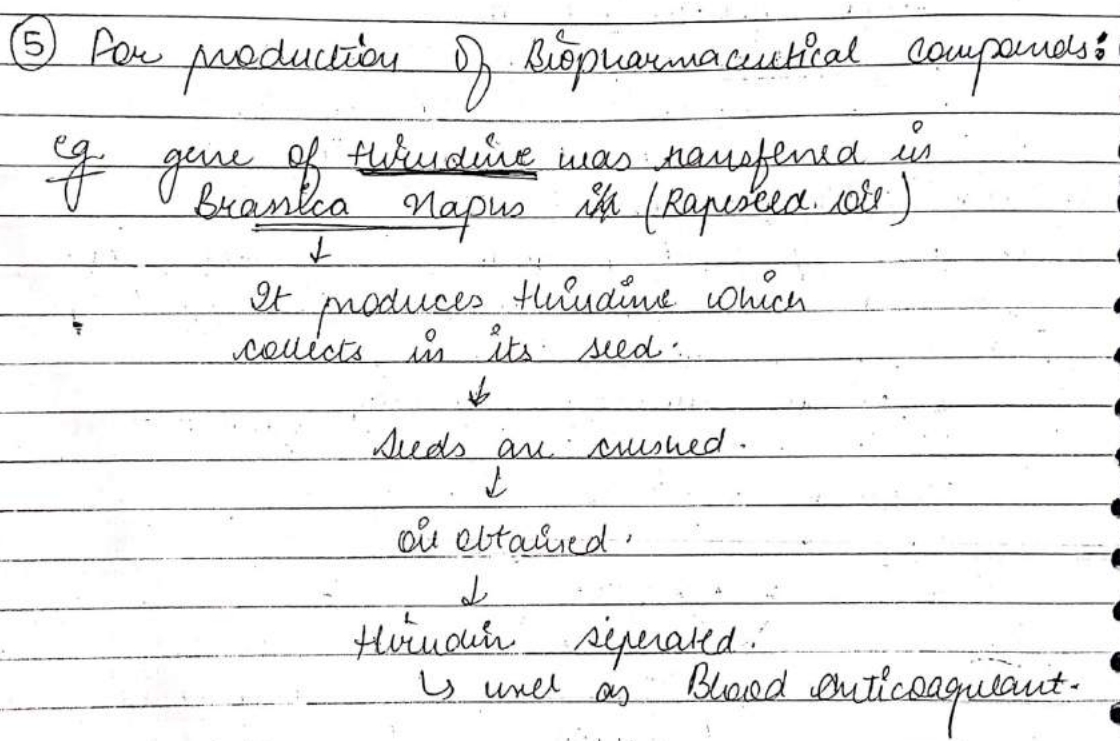 ⑤ For production of Biopharmaceutical compounds:
eg. gene of Hirudine was transferred in
Brassica Napus (Rapeseed oil)
↓
It produces Hirudine which
collects in its seed.
↓
Seeds are crushed.
↓
Oil obtained.
↓
Hirudin seperated.
↳ used as Blood Anticoagulant.